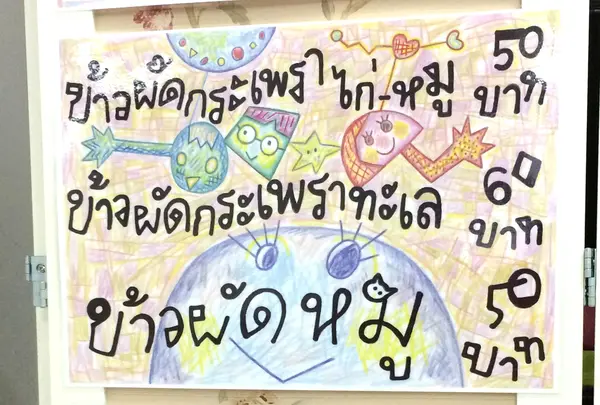 ข้าวผัดกระเพราไก่-หมู 50 บาท
ข้าวผัดกระเพราทะเล 60 บาท
ข้าวผัดหมู 50 บาท